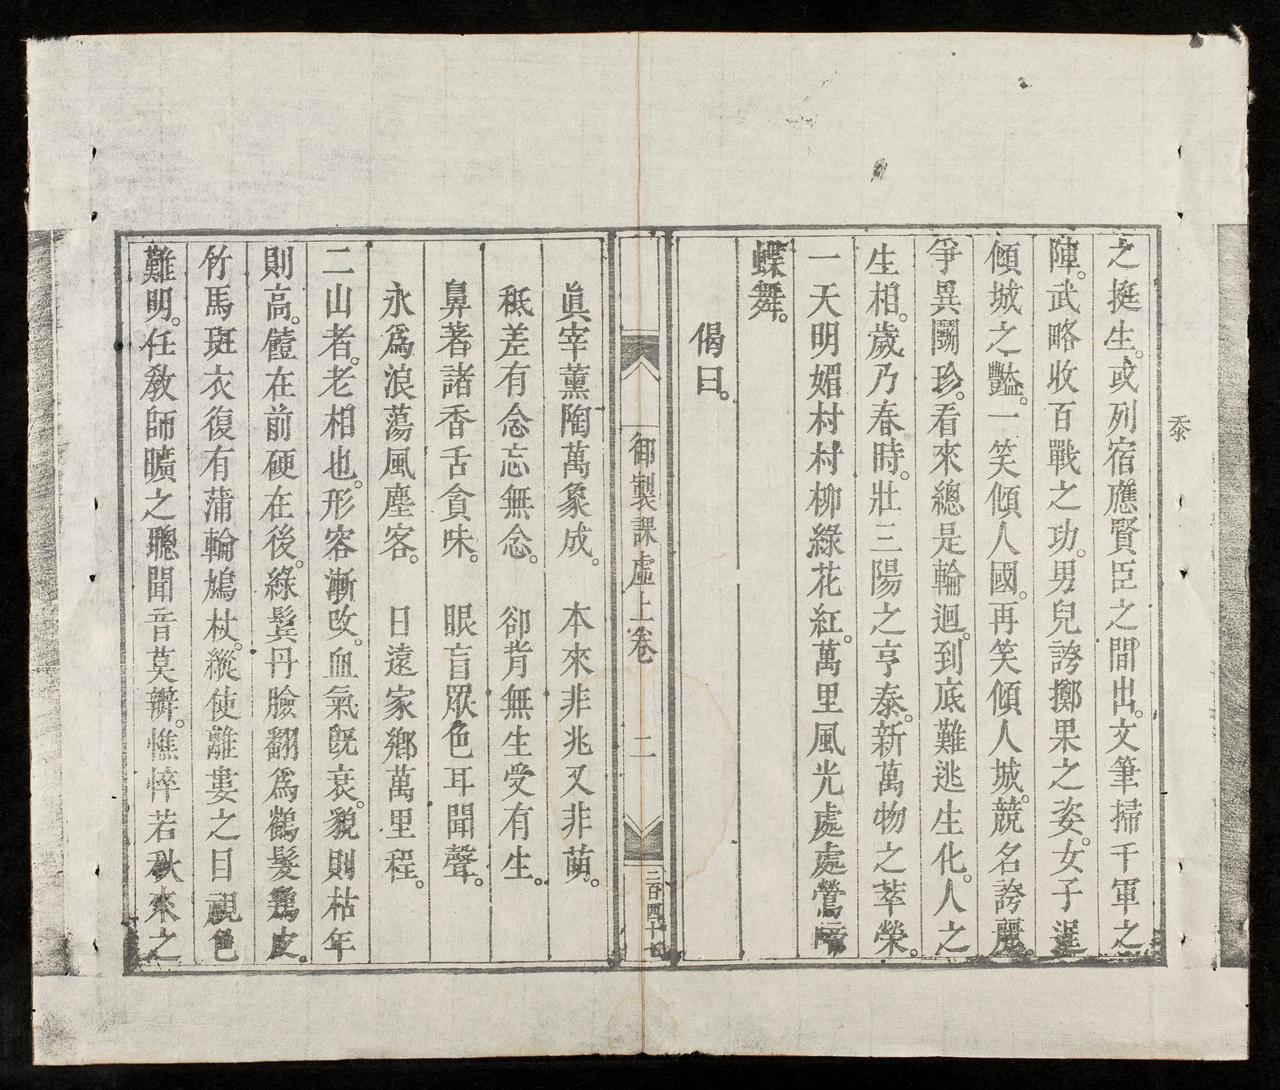 㤗
之挺生。或列宿應賢臣之間出。文筆掃千軍之
陣。武略收百戰之功。男兒誇擲果之姿。女子逞
傾城之豔。一笑傾人國。再笑傾人城。競名誇麗。
爭異鬬珍。看來總是輪迴。到底難逃生化。人之
生相。歲乃春時。壯三陽之亨泰。新萬物之萃榮。
一天明媚村村柳綠花紅。萬里風光處處鶯啼
蝶舞。
偈曰。
御製課虛上卷 二 三百四十七
眞宰薰陶萬象成。 本來非兆又非萌。
秪差有念忘無念。 卻肯無生受有生。
鼻著諸香舌貪味。 眼盲眾色耳聞聲。
永爲浪蕩風塵客。 日遠家鄉萬里程。
二山者。老相也。形容漸改。血氣旣衰。貌則枯年
則高。饐在前硬在後。綠鬂丹臉翻爲鶴髮雞皮。
竹馬斑衣復有蒲輪鳩杖。縱使離婁之目視色
難明。任敎師曠之聰聞音莫辨。憔悴若秋來之